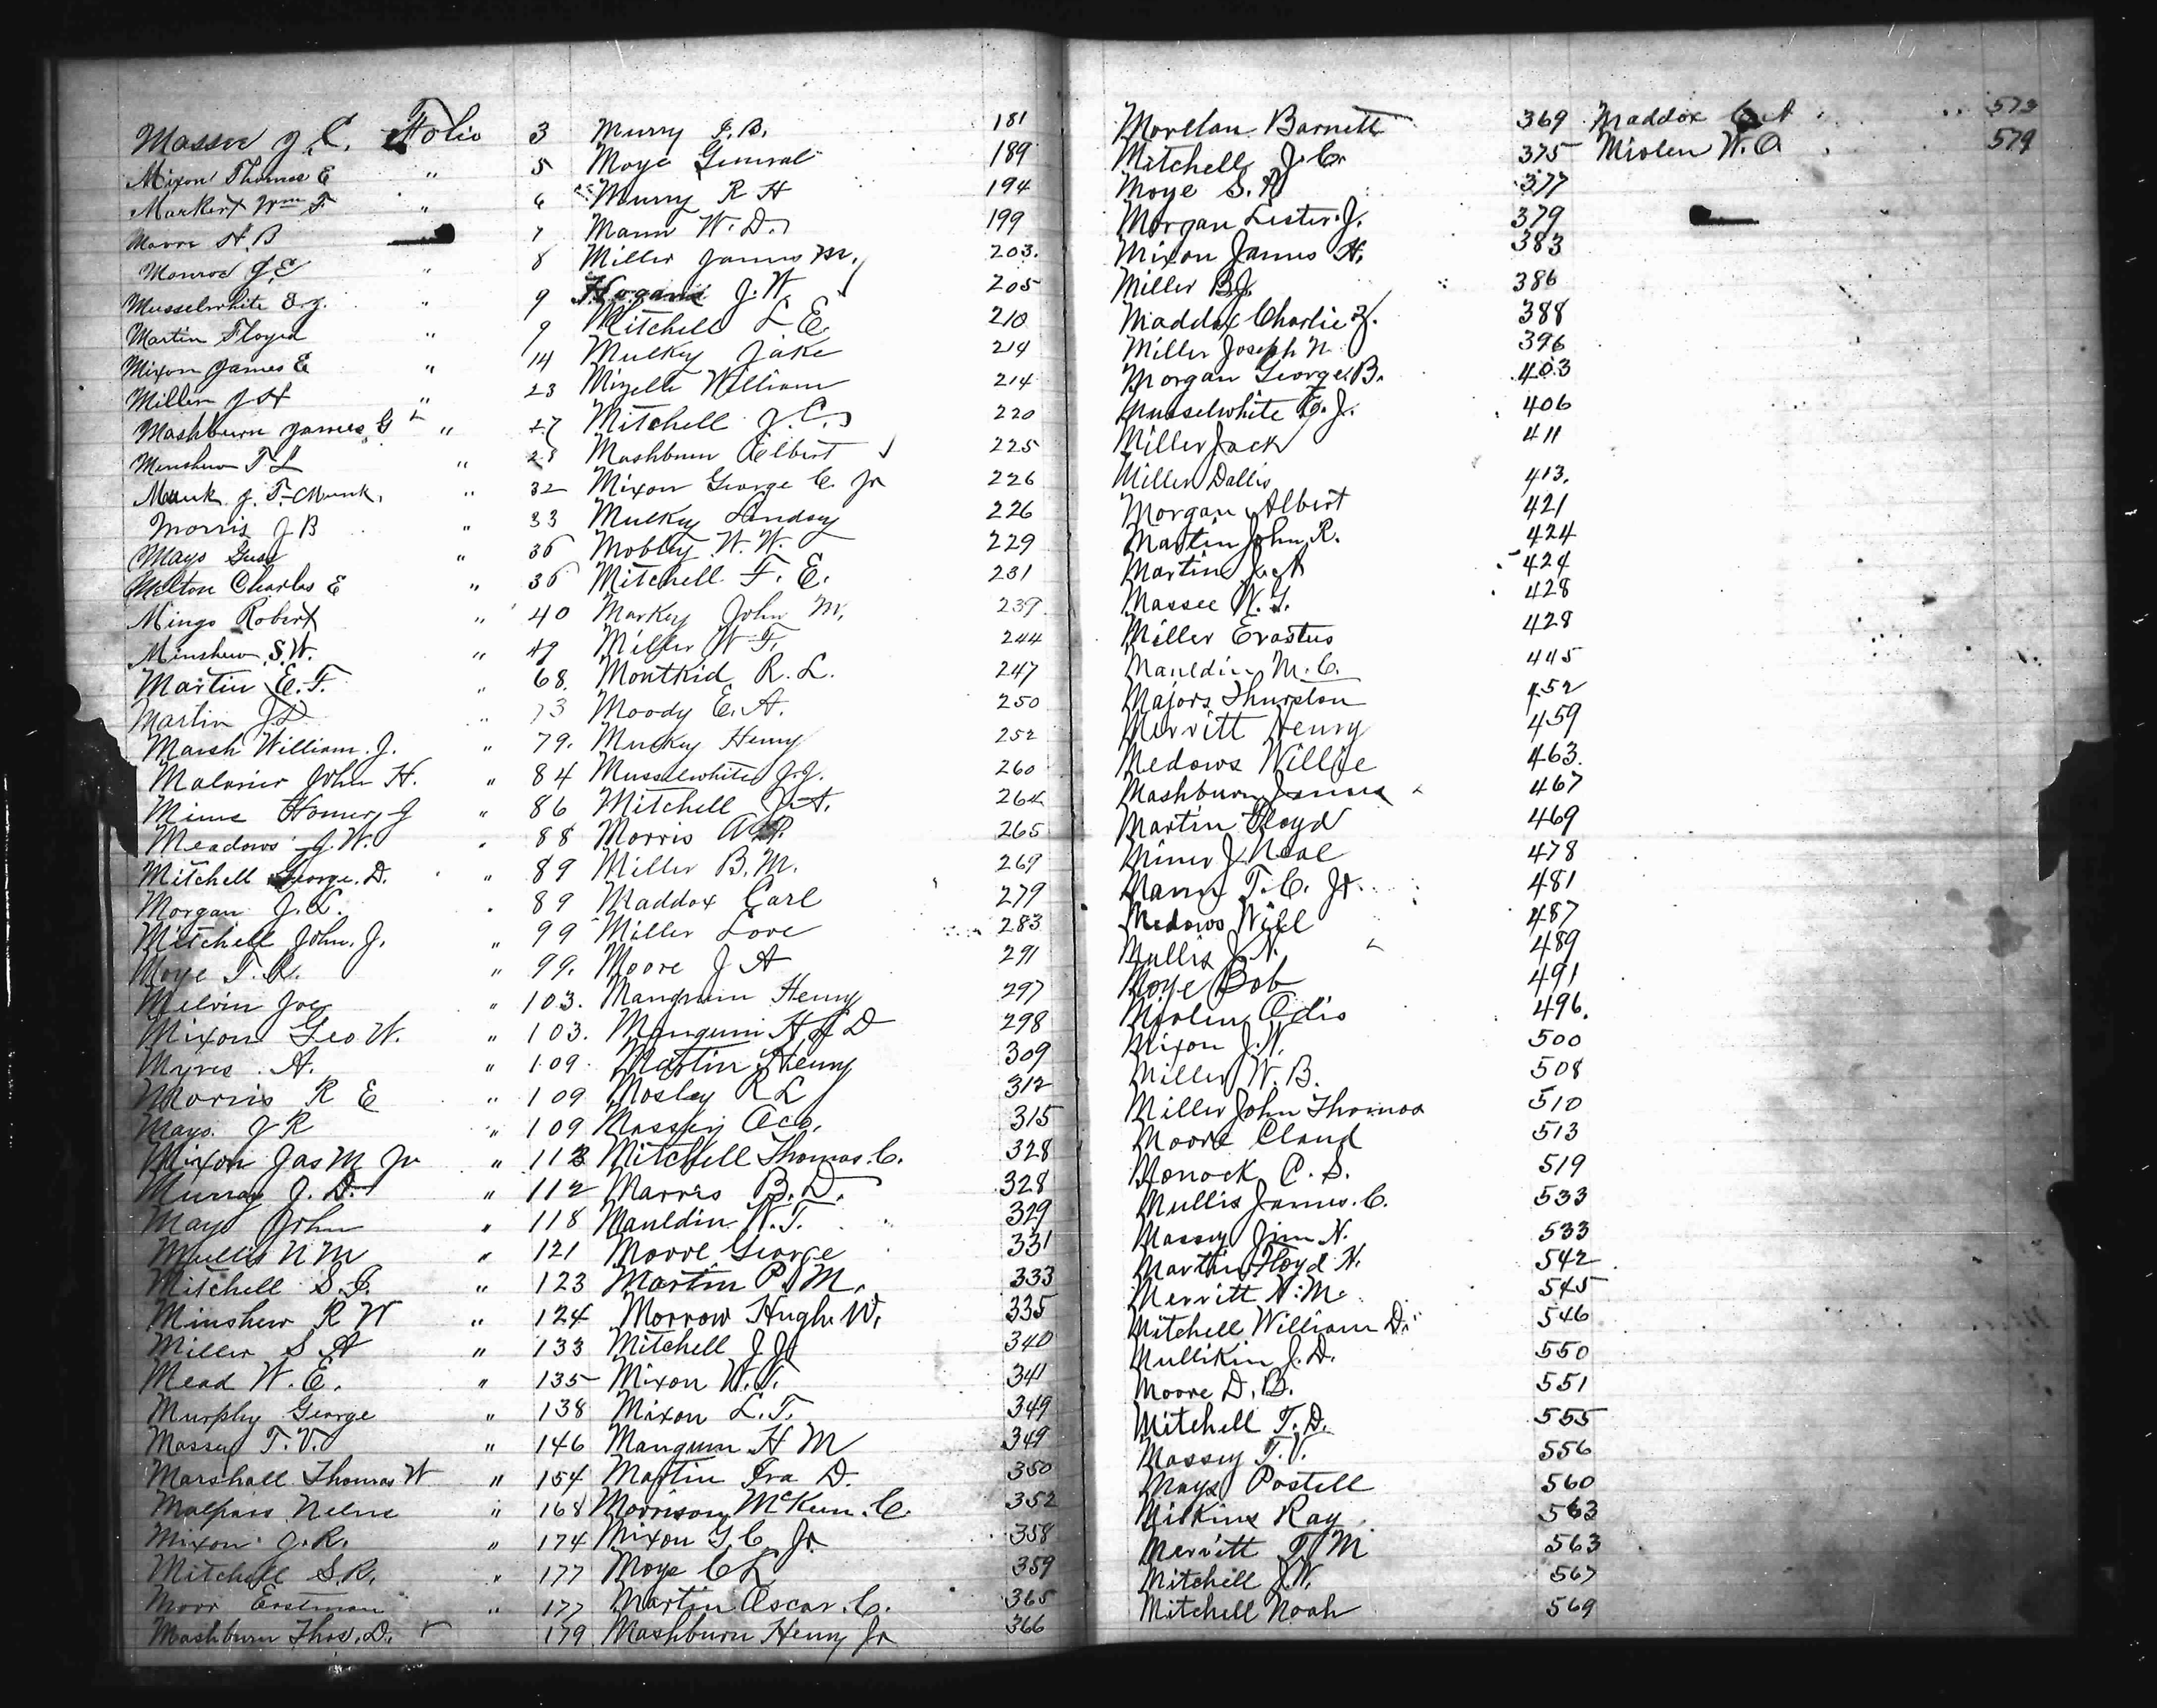 Massee J. C. Folio 3
Mixon Thomas E " 5
Markert Wm F " 6
Moore H. B 7
Monroe J. E " 8
Musselwhite E. J. " 9
Martin Floyd " 9
Mixon James E " 14
Miller J H " 23
Mashburn James G " 27
Minshew T L " 28
Maunk J. T. Munk. " 32
Morris J B " 33
Mayo Guss " 36
Melton Charles E " 36
Mingo Robert " 40
Minshew S. W. " 49
Martin E. F. " 68.
Martin J. D. " 73
Marsh William. J. " 79.
Malonir John H. " 84
Mims Homer J " 86
Meadows J. W. " 88
Mitchell George. D. " 89
Morgan J. L. " 89
Mitchell John. J. " 99
Moye T. R. " 99.
Melvin Joe " 103.
Mixon Geo W. " 103.
Myres A. " 109
Morris R E " 109
Mayo. J R " 109
Mixon Jas M Jr " 112
Murray J. D. " 112
Mayo John " 118
Mullis N M " 121
Mitchell S. J. " 123
Minshew R W " 124
Miller S A " 133
Mead W. E. " 135
Murphy George " 138
Massey T. V. " 146
Marshall Thomas W " 154
Malpass Nelse " 168
Mixon J. R. " 174
Mitchell S. R. " 177
Moor Eastman " 177
Mashburn Thos. D. " 179
Murry J. B. 181
Moye General 189
Murry R H 194
Mann W. D. 199
Miller James M. 203.
Hogan J. W. 205
Mitchell L E. 210
Mulkey Jake 214
Mizelle William 214
Mitchell J. C. 220
Mashburn Elbert 225
Mixon George C. Jr 226
Mulkey Lindsey 226
Mobley W. W. 229
Mitchell F. E. 231
Markey John M. 239
Miller W F. 244
Montkid R. L. 247
Moody E. A. 250
Muckey Henry 252
Musselwhite J. J. 260
Mitchell J. A. 264
Morris A. P. 265
Miller B. M. 269
Maddox Carl 279
Miller Love 283
Moore J A 291
Mangrum Henry 297
Mangum H D 298
Martin Henry 309
Mosley R L 312
Massey Aco. 315
Mitchell Thomas. C. 328
Marris B. D. 328
Mauldin W. T. 329
Moore George 331
Martin P. M. 333
Morrow Hugh. W. 335
Mitchell J J 340
Mixon W. T. 341
Mixon L. T. 349
Mangum H M 349
Martin Ira D. 350
Morrison McKun. C. 352
Mixon G. C. Jr. 358
Moye C L 359
Martin Oscar. C. 365
Mashburn Henry Jr 366
Morellan Barnett 369
Mitchell J. C. 375
Moye S. A 377
Morgan Lester J. 379
Mixon James H. 383
Miller B J. 386
Maddox Charlie Z. 388
Miller Joseph N 396
Morgan George. B. 403
Musselwhite E. J. 406
Miller Jack 411
Miller Dallis 413.
Morgan Albert 421
Martin John R. 424
Martin J. A 424
Massee W. J. 428
Miller Erastus 428
Mauldin M. C. 445
Majors Thurston 452
Merritt Henry 459
Medows Willie 463.
Mashburn James 467
Martin Floyd 469
Miner J Neal 478
Mann T. C. Jr. 481
Medows Will 487
Mullis J. N. 489
Moye Bob 491
Miolen Odis 496.
Mixon J. W. 500
Miller W. B. 508
Miller John Thomas 510
Moore Claud 513
Monock C. S. 519
Mullis James. C. 533
Massey Jim N. 533
Martin Floyd H. 542
Merritt H. M. 545
Mitchell William D. 546
Mullikin J. D. 550
Moore D. B. 551
Mitchell T. D. 555
Massey T. V. 556
Mays Postell 560
Milkins Ray 563
Merritt T M 563
Mitchell J. W. 567
Mitchell Noah 569
Maddox C A 573
Miolen W. O 579